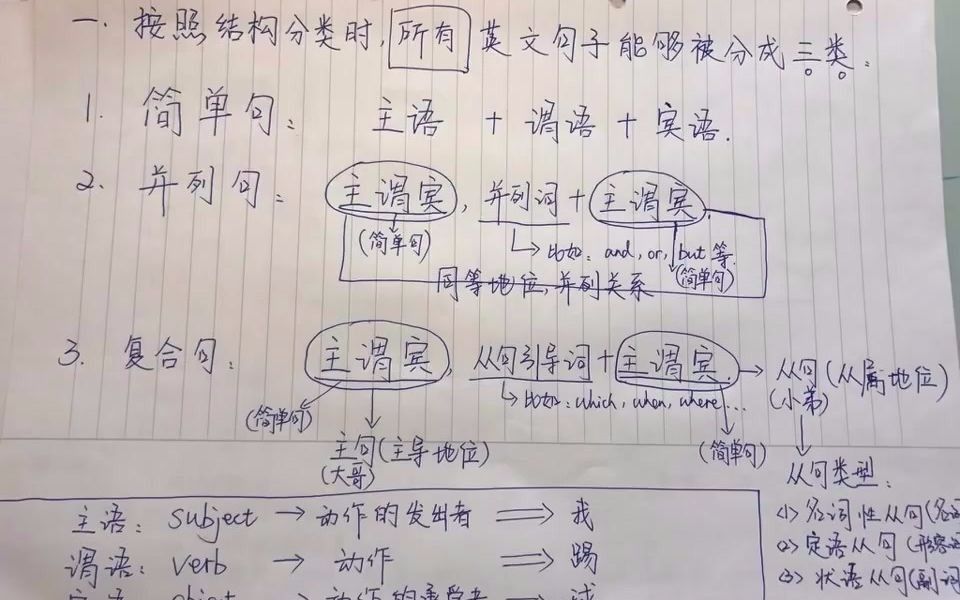 一. 按照结构分类时, 所有 英文句子能够被分成三类.
1. 简单句: 主语 + 谓语 + 宾语.
2. 并列句: 主谓宾, 并列词 + 主谓宾.
(简单句) 比如: and, or, but 等.
(简单句)
同等地位, 并列关系
3. 复合句: 主谓宾, 从句引导词 + 主谓宾 → 从句 (从属地位)
(小弟)
比如: which, when, where...
(简单句) (简单句)
主句 (主导地位)
(大哥)
从句类型:
(1) 名词性从句 (名词
(2) 定语从句 (形容词
(3) 状语从句 (副词
主语: subject → 动作的发出者 ⇒ 我
谓语: verb → 动作 ⇒ 踢